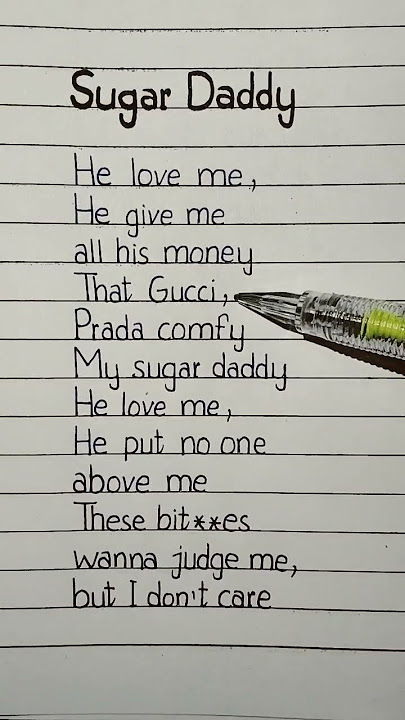 Sugar Daddy
He love me,
He give me
all his money
That Gucci,
Prada comfy
My sugar daddy
He love me,
He put no one
above me
These bit**es
wanna judge me,
but I don't care